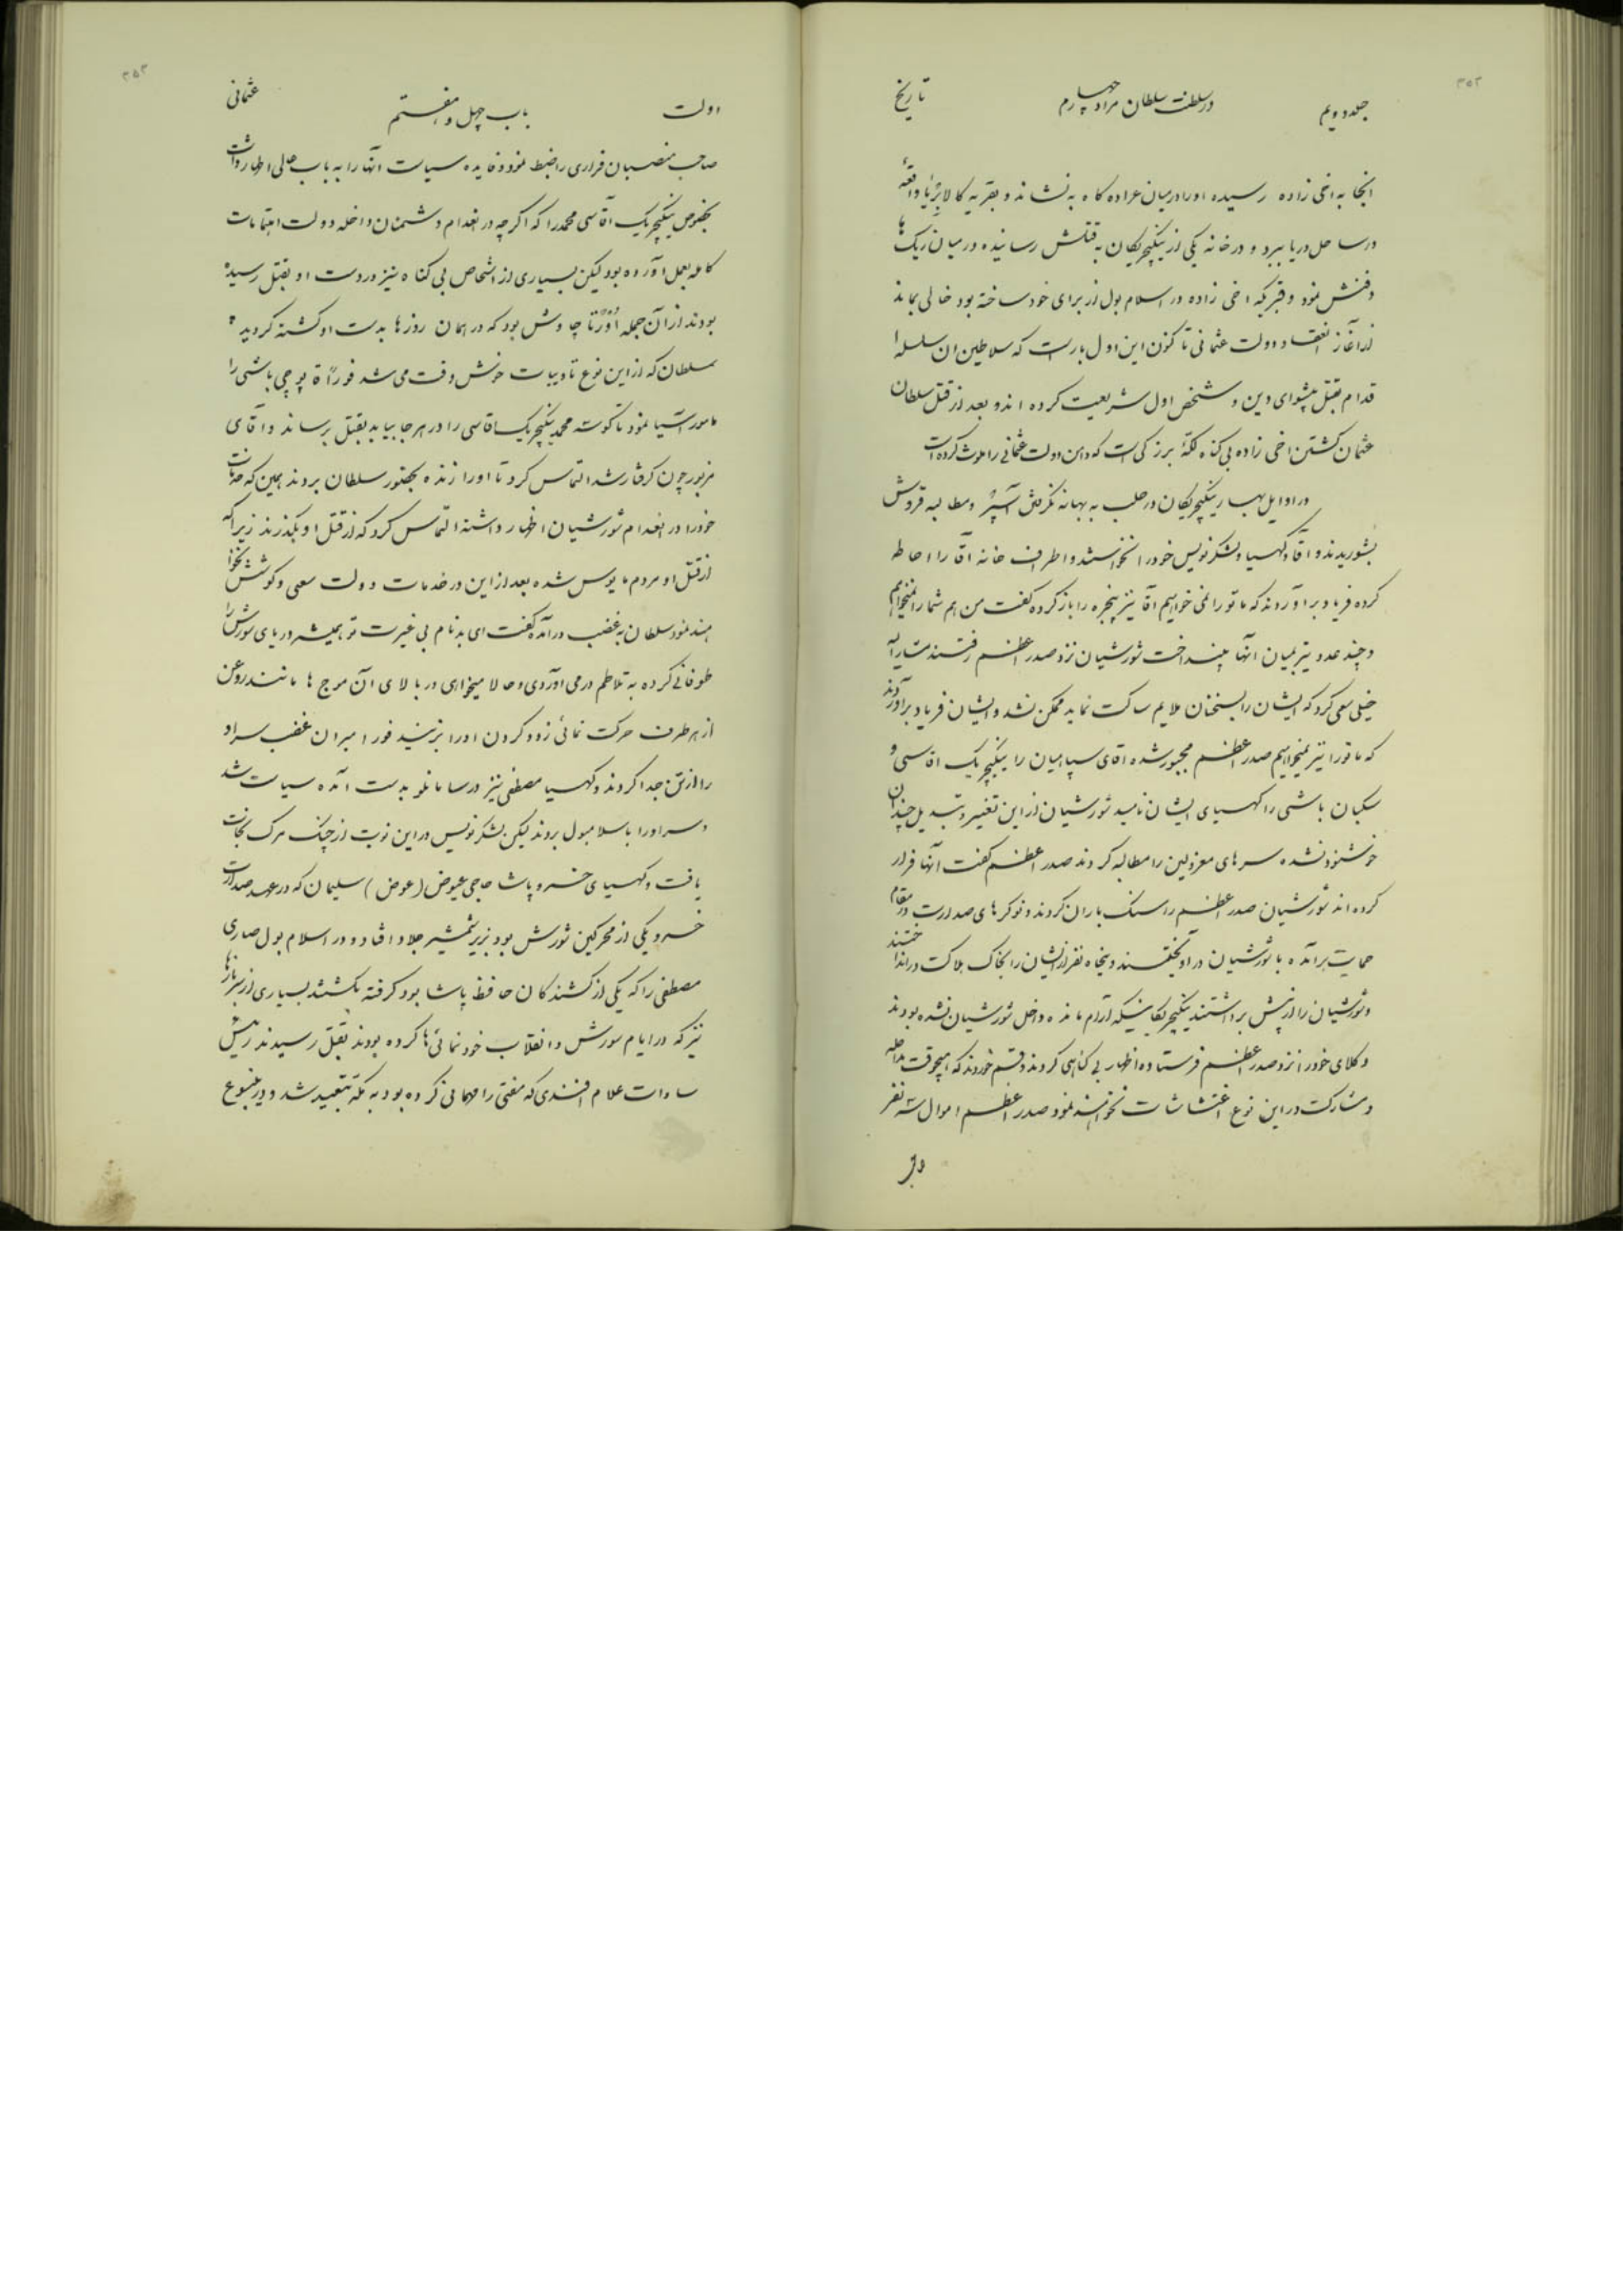 ۳۵۲
جلد دویم در سلطنت سلطان مراد چهارم تاریخ
انجا به اخی زاده رسیده اورا در میان عراده کاه به نشاند و بقریه کالابریا واقعهٔ
در ساحل دریا ببرد و در خانه یکی از ینکیچریکان به قتلش رسانیده در میان ریک ها
دفنش نمود و قبریکه اخی زاده در اسلام بول از برای خود ساخته بود خالی بماند
از آغاز انعقاد دولت عثمانی تا کنون این اول بار است که سلاطین ان سلسله
اقدام بقتل پیشوای دین و شخص اول شریعت کرده اند و بعد از قتل سلطان
عثمان کشتن اخی زاده بی کناه لکهٔ بزرکی است که دامن دولت عثمانی را ملوث کرده است
در اوایل بهار ینکیچریکان در حلب به بهانه نکرفتن آسپر و مطالبه قروش
بشوریدند و اقا و کهیا و لشکرنویس خود را نخواستند و اطراف خانه آقا را احاطه
کرده فریاد براوردند که ما تو را نمی خواهیم اقا نیز پنجره را باز کرده کفت من هم شما را نمیخواهم
و چند عدد تیر بمیان انها بینداخت شورشیان نزد صدر اعظم رفتند مشارالیه
خیلی سعی کرد که ایشان را بسخنان ملایم ساکت نماید ممکن نشد و ایشان فریاد برآوردند
که ما تو را نیز نمیخواهیم صدر اعظم مجبور شده اقای سپاهیان را ینکیچریک اقاسی و
سکبان باشی را کهیای ایشان نامید شورشیان از این تغییر و تبدیل چندان
خوشنود نشده سرهای معزولین را مطالبه کردند صدر اعظم کفت آنها فرار
کرده اند شورشیان صدر اعظم را سنک باران کردند و نوکرهای صدارت در مقام
حمایت برآمده با شورشیان در آویختند و پنجاه نفر از ایشان را بخاک هلاکت در انداختند
و شورشیان را از پیش برداشتند ینکیچریکانیکه آرام مانده داخل شورشیان نشده بودند
وکلای خود را نزد صدر اعظم فرستاده اظهار بی کناهی کردند و قسم خوردند که هیچوقت مداخله
و مشارکت در این نوع اغتشاشات نخواهند نمود صدر اعظم اموال سه نفر

۳۵۳
دولت باب چهل و هفتم عثمانی
صاحب منصبان فراری را ضبط نمود و فایده سیاست آنها را به باب عالی اظهار داشت
بخصوص ینکیچریک آقاسی محمد را که اکرچه در انعدام دشمنان داخله دولت اهتمامات
کامله بعمل آورده بود لیکن بسیاری از اشخاص بی کناه نیز در دست او بقتل رسیده
بودند از آن جمله اورتا چاوش بود که در همان روزها بدست او کشته کردید
سلطان که از این نوع تادیبات خوش وقت می شد فوراً قاپوچی باشی را
مامور آسیا نمود تا کوسه محمد ینکیچریک اقاسی را در هر جا بیابد بقتل برساند و آقای
مزبور چون کرفتار شد التماس کرد تا اورا زنده بحضور سلطان بردند همین که خدمات
خود را در انعدام شورشیان اظهار داشته التماس کرد که از قتل او بکذرند زیرا که
از قتل او مردم مایوس شده بعد از این در خدمات دولت سعی و کوشش نخواهند
نمود سلطان به غضب درآمده کفت ای بدنام بی غیرت تو همیشه دریای شورش را
طوفانی کرده به تلاطم درمی آوردی و حالا میخواهی در بالای آن موج ها مانند روغن
از هر طرف حرکت نمائی زود کردن اورا بزنید فورا میران غضب سر او
را از تن جدا کردند و کهیا مصطفی نیز در سامانلو بدست آمده سیاست شد
و سر اورا باسلامبول بردند لیکن لشکرنویس در این نوبت از چنک مرک نجات
یافت و کهیای خسرو پاشا حاجی عیوض (عوض) سلیمان که در عهد صدارت
خسرو یکی از محرکین شورش بود بزیر شمشیر جلاد افتاد و در اسلام بول صاری
مصطفی را که یکی از کشندکان حافظ پاشا بود کرفته بکشتند بسیاری از
نیز که در ایام شورش و انقلاب خودنمائی ها کرده بودند بقتل رسیدند رئیس
سادات علام افندی که مفتی را مهمانی کرده بود به مکه تبعید شد و در ینبوع